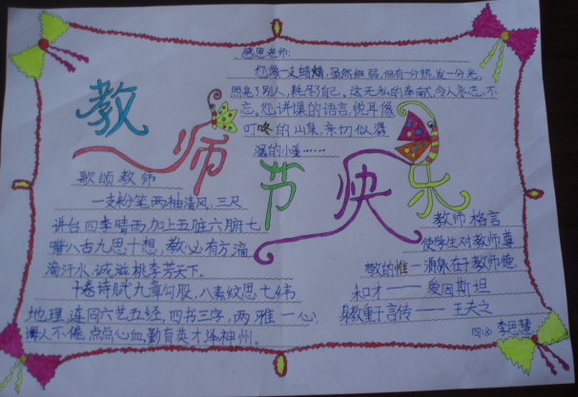 教师节快乐
感恩老师:
您像一支蜡烛,虽然细弱,但有一分热,发一分光,
照亮了别人,耗尽了自己。这无私的奉献,令人永志不
忘。您讲课的语言,悦耳像
叮咚的山泉,亲切似潺
潺的小溪……
歌颂教师
一支粉笔,两袖清风,三尺
讲台四季晴雨,加上五脏六腑七
嘴八舌九思十想,教必有方滴
滴汗水,诚滋桃李芳天下。
十卷诗赋九章勾股,八索纹思七纬
地理,连同六艺五经,四书三字,两雅一心,
诲人不倦,点点心血,勤育英才泽神州。
教师格言
使学生对教师尊
敬的惟一源泉在于教师德
和才——爱因斯坦
身教重于言传——王夫之
李思慧